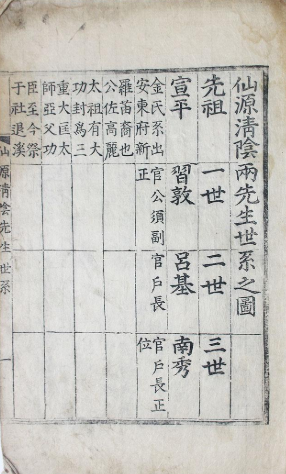 仙源淸陰兩先生世系之圖
先祖 一世 二世 三世
宣平 習敦 呂基 南秀
金氏系出 官公須副 官戶長 官戶長正
安東府新 正 位
羅苗裔也
公佐高麗
太祖有大
功封爲三
重大匡太
師亞父功
臣至今祭
于社退溪
仙源淸陰先生世系